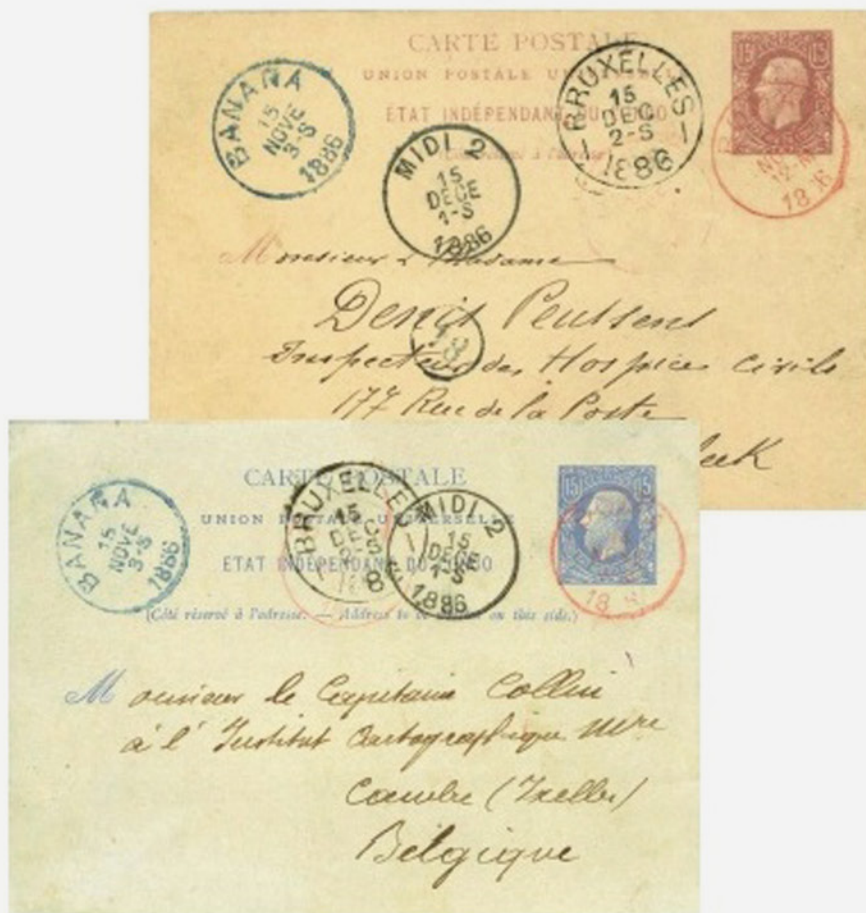 CARTE POSTALE
UNION POSTALE
ETAT INDÉPENDANT DU CONGO
15 15
BANANA
15
NOVE
3-S
1886
BRUXELLES
15
DEC
2-S
1886
MIDI 2
15
DECE
1-S
1886
18 6
Monsieur & Madame
Denis Peutsens
18
Inspecteur des Hospices Civils
177 Rue de la Poste
CARTE POSTALE
UNION POSTALE UNIVERSELLE
ETAT INDÉPENDANT DU CONGO
(Côté réservé à l'adresse. — Address to be on this side.)
15 15
BANANA
15
NOVE
3-S
1886
BRUXELLES
15
DEC
MIDI 2
15
DECE
1-S
1886
18
Monsieur le Capitaine Collin
à l'Institut Cartographique Mre
Cambre (Ixelles)
Belgique